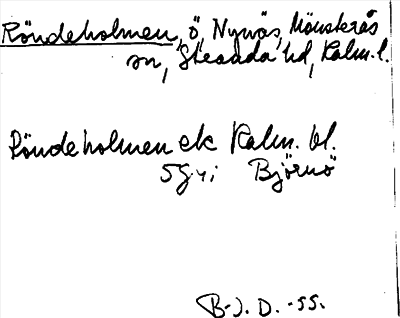 Röndeholmen, ö, Nynäs, Mönsterås
sn, Stranda hd, Kalm. l.
Röndeholmen ek Kalm. bl.
5G4i Björnö
B-J. D. -55.